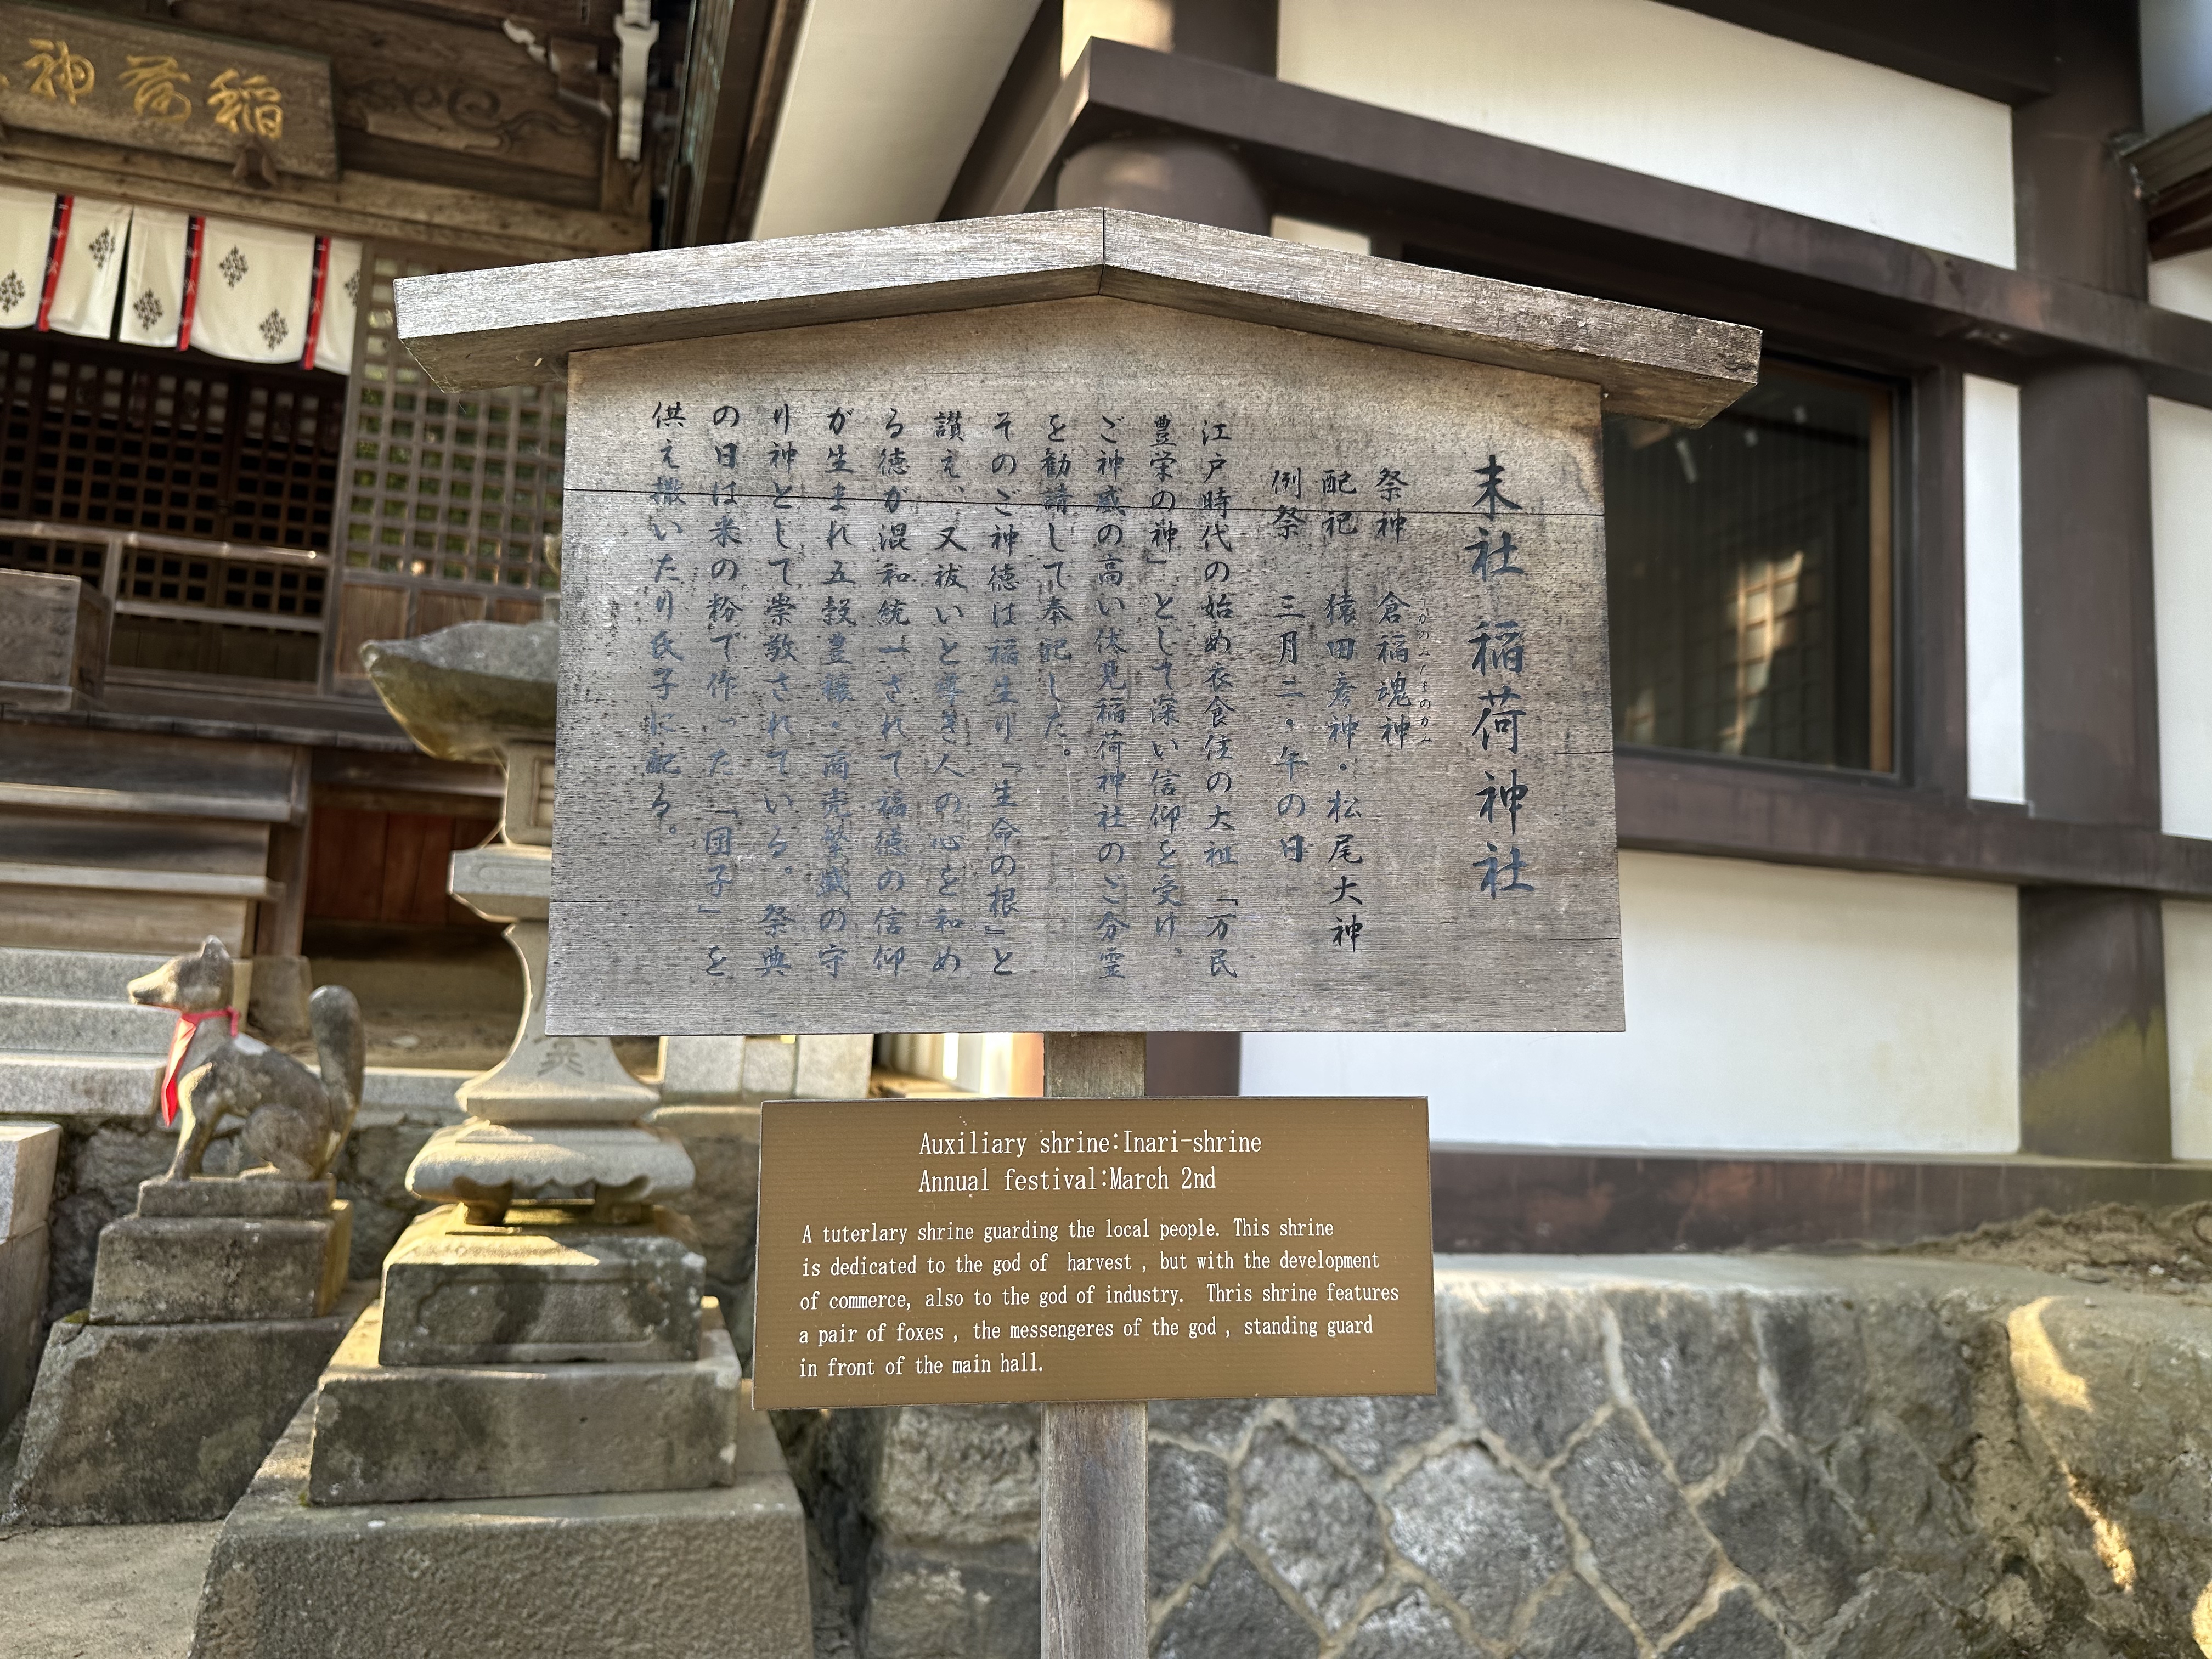 稲荷神
末社 稲荷神社
祭神 倉稲魂神
配祀 猿田彦神・松尾大神
例祭 三月二・午の日
江戸時代の始め衣食住の大祖「万民
豊栄の神」として深い信仰を受け、
ご神威の高い伏見稲荷神社のご分霊
を勧請して奉祀した。
そのご神徳は稲生り『生命の根』と
讃え、又祓いと尊き人の心を和め
る徳が混和統一されて福徳の信仰
が生まれ五穀豊穣・商売繁盛の守
り神として崇敬されている。祭典
の日は米の粉で作った「団子」を
供え撒いたり氏子に配る。
Auxiliary shrine:Inari-shrine
Annual festival:March 2nd
A tuterlary shrine guarding the local people. This shrine
is dedicated to the god of harvest , but with the development
of commerce, also to the god of industry. Thris shrine features
a pair of foxes , the messengeres of the god , standing guard
in front of the main hall.